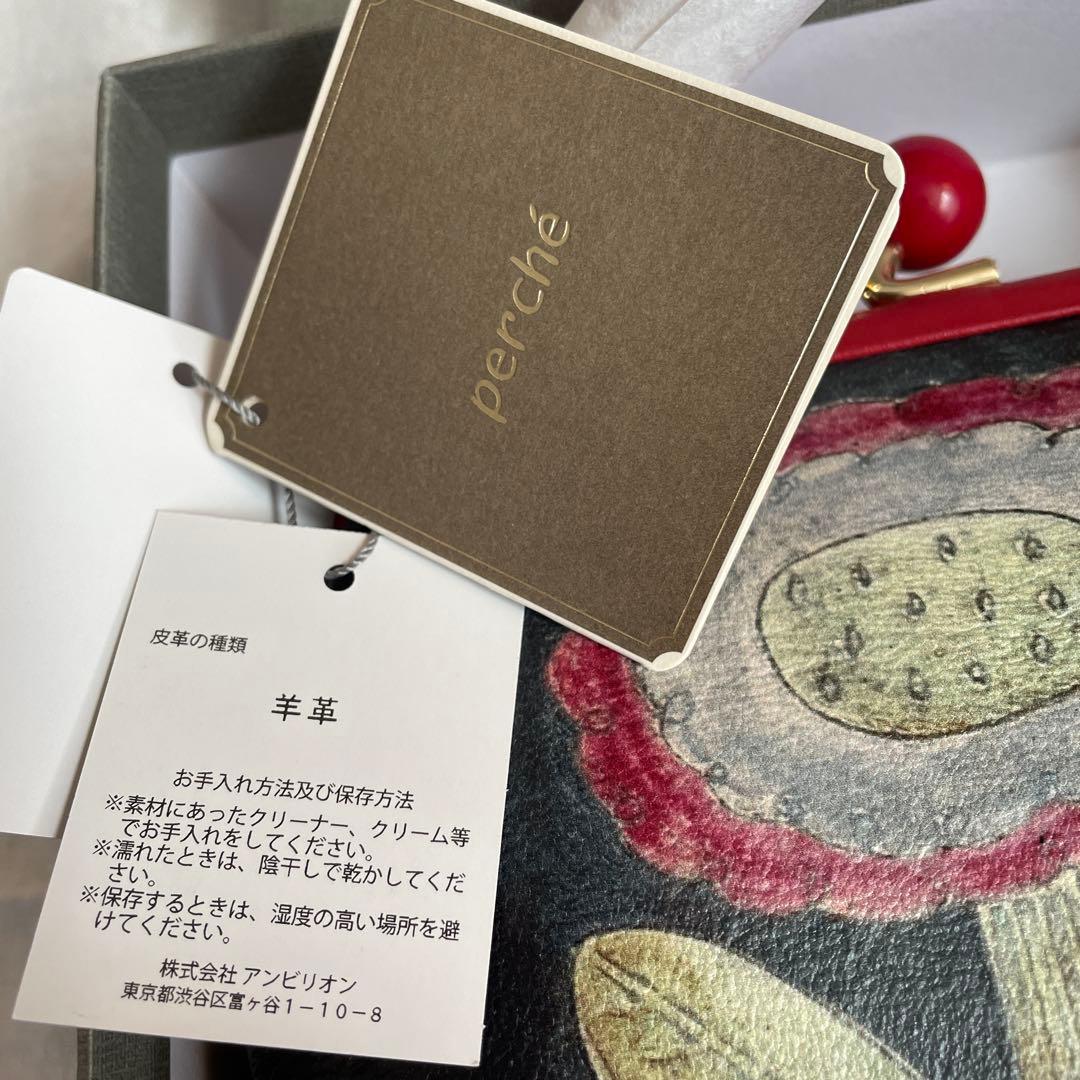 perché
皮革の種類
羊革
お手入れ方法及び保存方法
※素材にあったクリーナー、クリーム等
でお手入れをしてください。
※濡れたときは、陰干しで乾かしてくだ
さい。
※保存するときは、湿度の高い場所を避
けてください。
株式会社 アンビリオン
東京都渋谷区富ヶ谷1-10-8